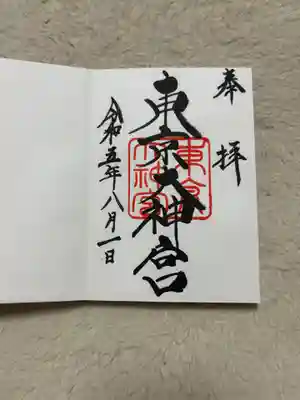 奉拝
東京大神宮
東京大神宮
令和五年八月一日